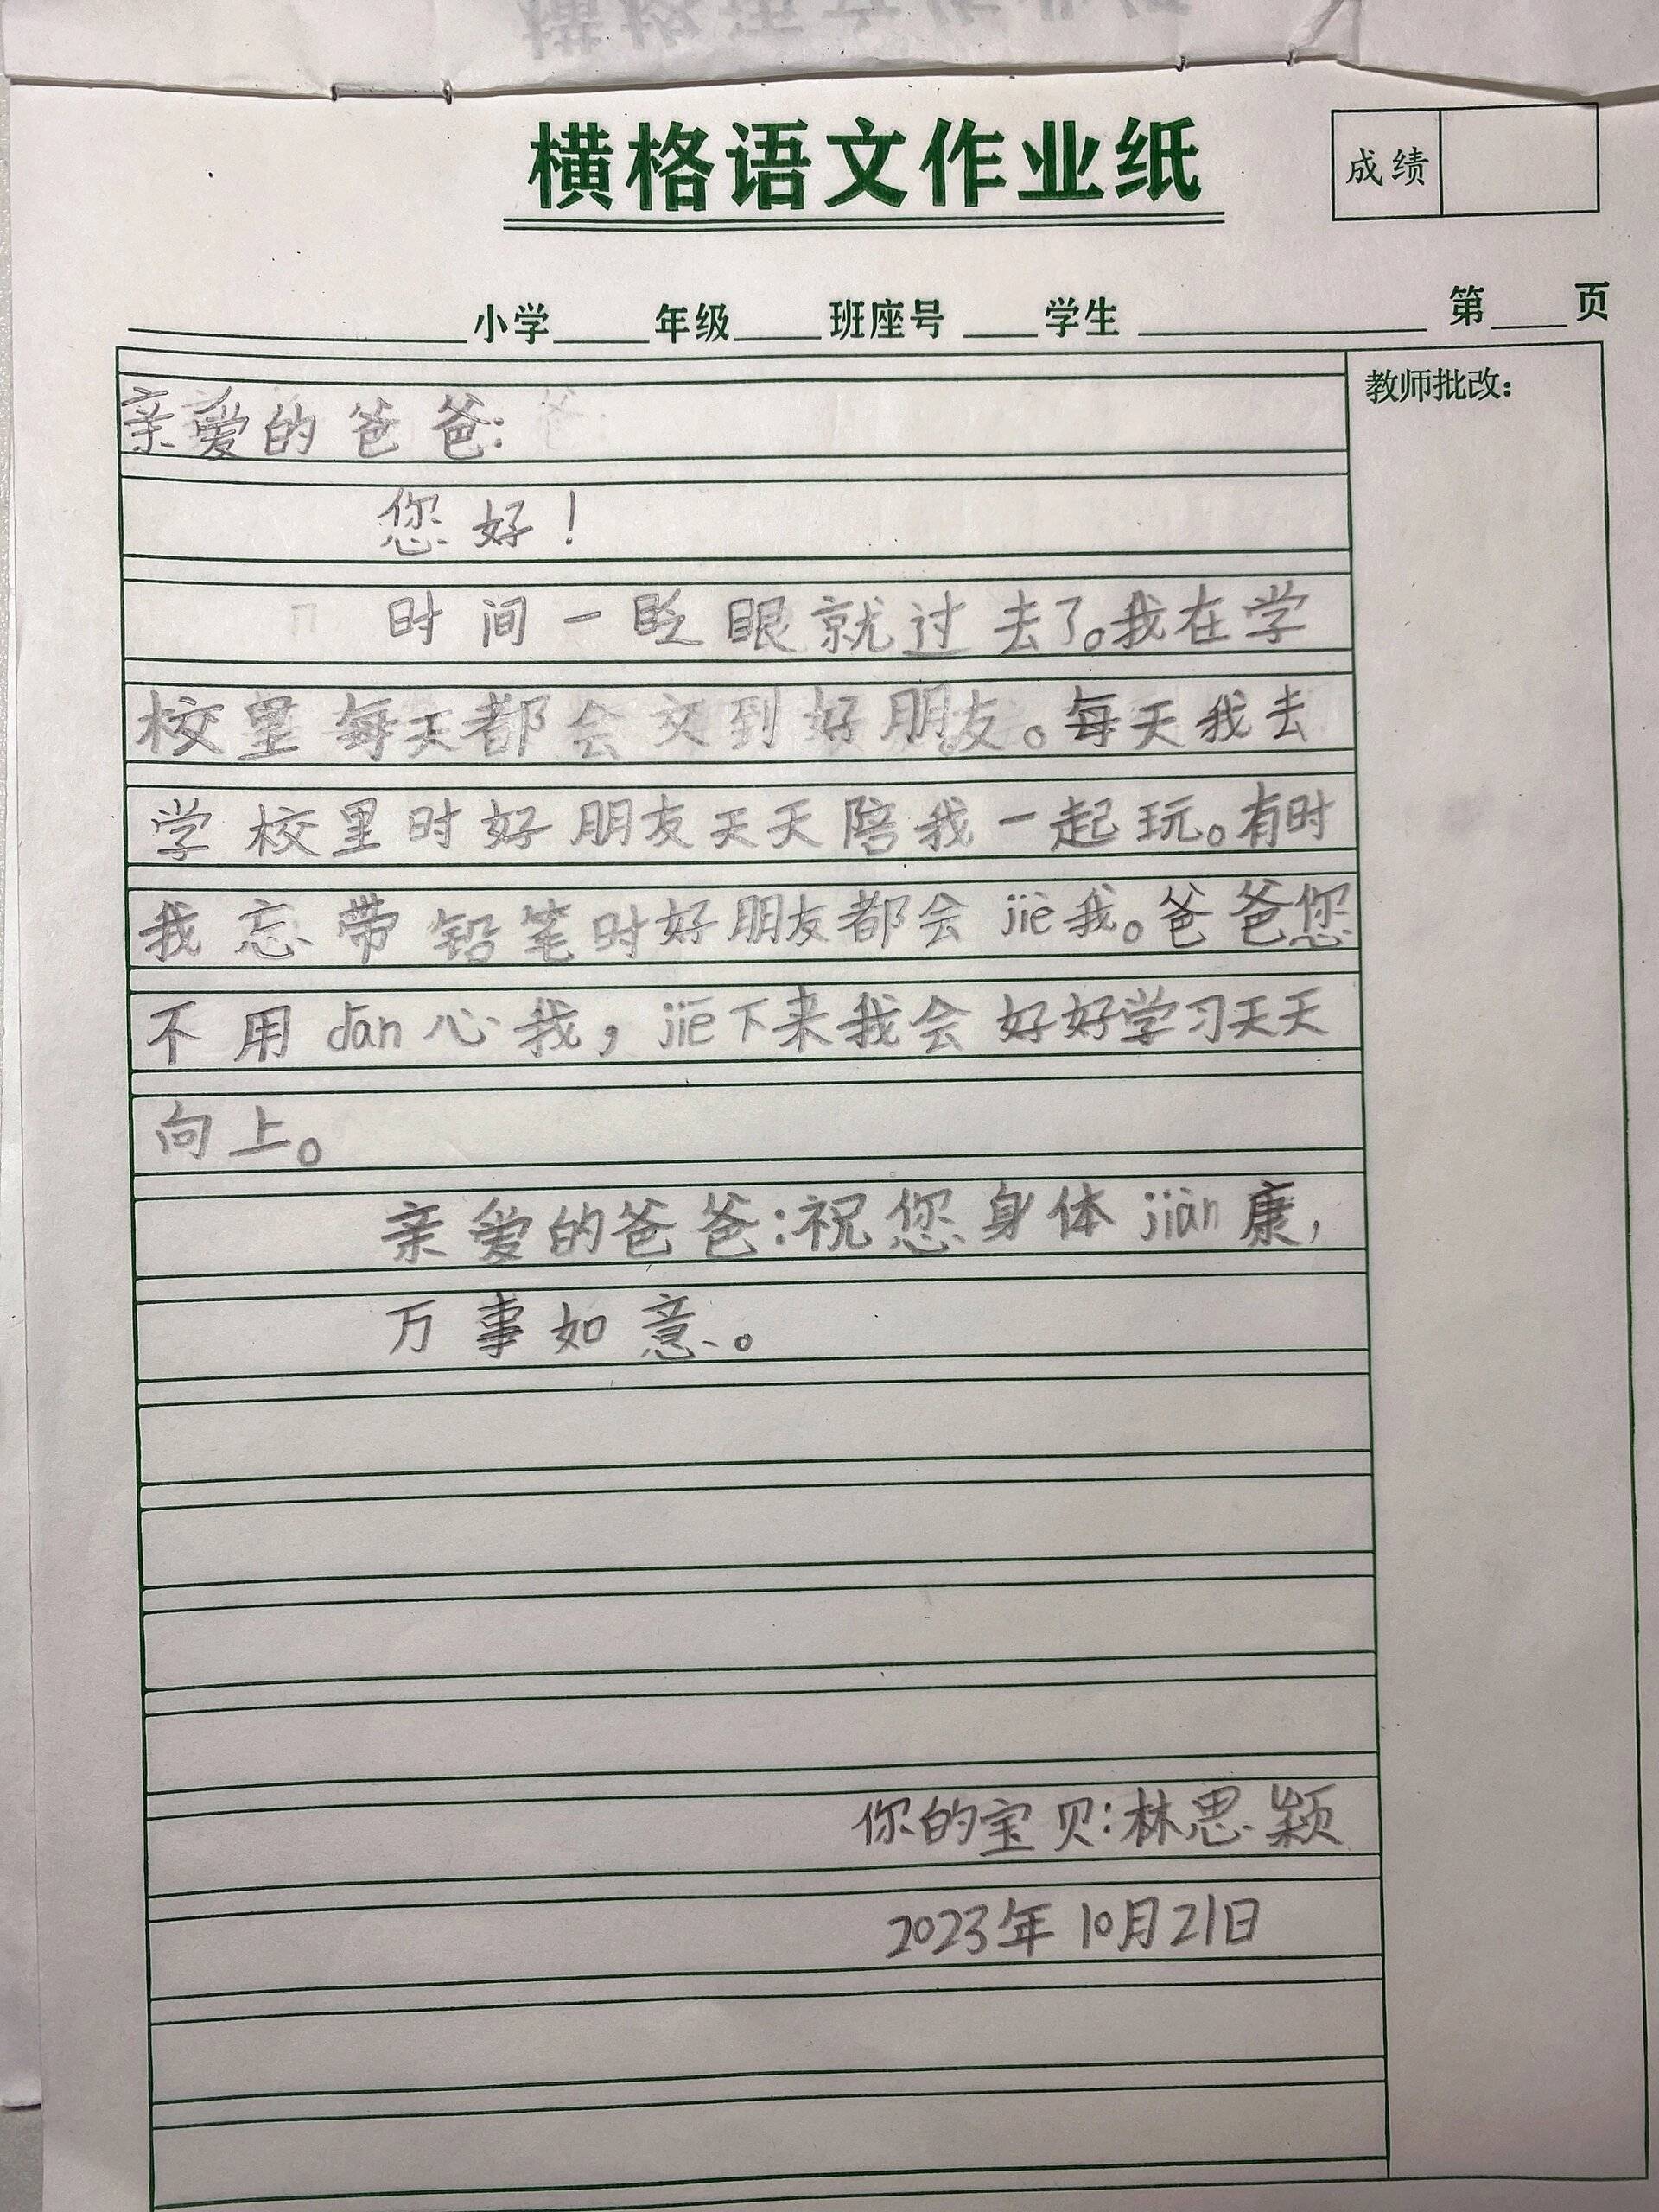 横格语文作业纸
成绩
小学 年级 班座号 学生 第 页
教师批改：
亲爱的爸爸：
您好！
时间一眨眼就过去了。我在学
校里每天都会交到好朋友。每天我去
学校里时好朋友天天陪我一起玩。有时
我忘带铅笔时好朋友都会jiè我。爸爸您
不用dān心我，jiē下来我会好好学习天天
向上。
亲爱的爸爸：祝您身体jiàn康，
万事如意。
你的宝贝：林思颖
2023年10月21日